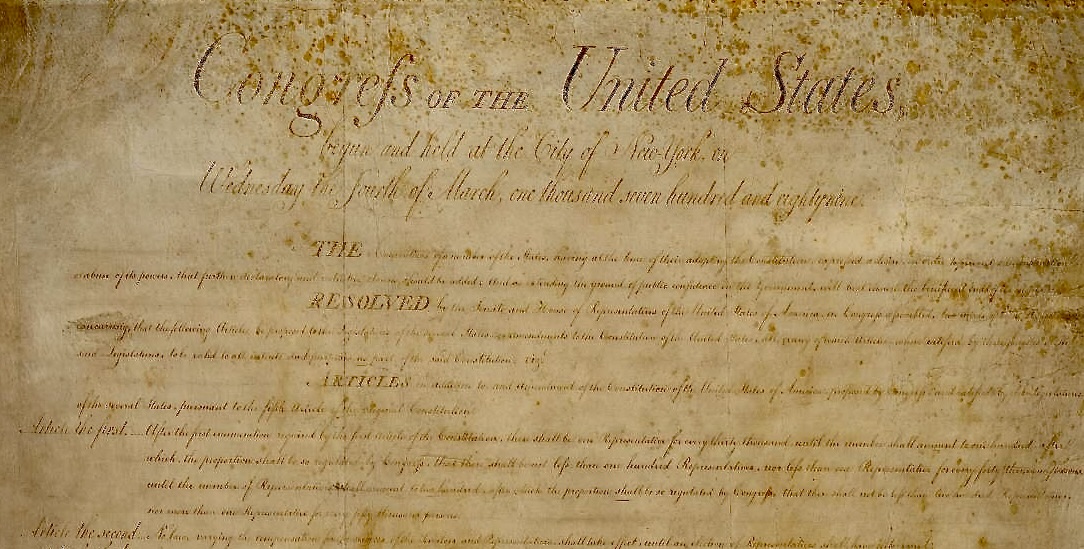 Congreſs OF THE United States,
begun and held at the City of New-York, on
Wednesday the fourth of March, one thousand seven hundred and eighty nine.
THE Conventions of a number of the States, having at the time of their adopting the Constitution, expreſsed a desire, in order to prevent
or abuse of its powers, that further declaratory and restrictive clauses should be added: And as extending the ground of public confidence in the Government, will best ensure the beneficent ends of its
RESOLVED by the Senate and House of Representatives of the United States of America, in Congreſs aſsembled, two thirds of
concurring, that the following Articles be proposed to the Legislatures of the several States, as amendments to the Constitution of the United States, all, or any of which Articles, when ratified by three fourths of the
said Legislatures, to be valid to all intents and purposes, as part of the said Constitution; viz.
ARTICLES in addition to, and Amendment of the Constitution of the United States of America, proposed by Congreſs, and ratified by the Legislatures
of the several States, pursuant to the fifth Article of the original Constitution.
Article the first. After the first enumeration required by the first Article of the Constitution, there shall be one Representative for every thirty thousand, until the number shall amount to one hundred, after
which, the proportion shall be so regulated by Congreſs, that there shall be not leſs than one hundred Representatives, nor leſs than one Representative for every forty thousand persons,
until the number of Representatives shall amount to two hundred, after which the proportion shall be so regulated by Congreſs, that there shall not be leſs than two hundred Representatives,
nor more than one Representative for every fifty thousand persons.
Article the second. No law, varying the compensation for the services of the Senators and Representatives, shall take effect, until an election of Representatives shall have intervened.